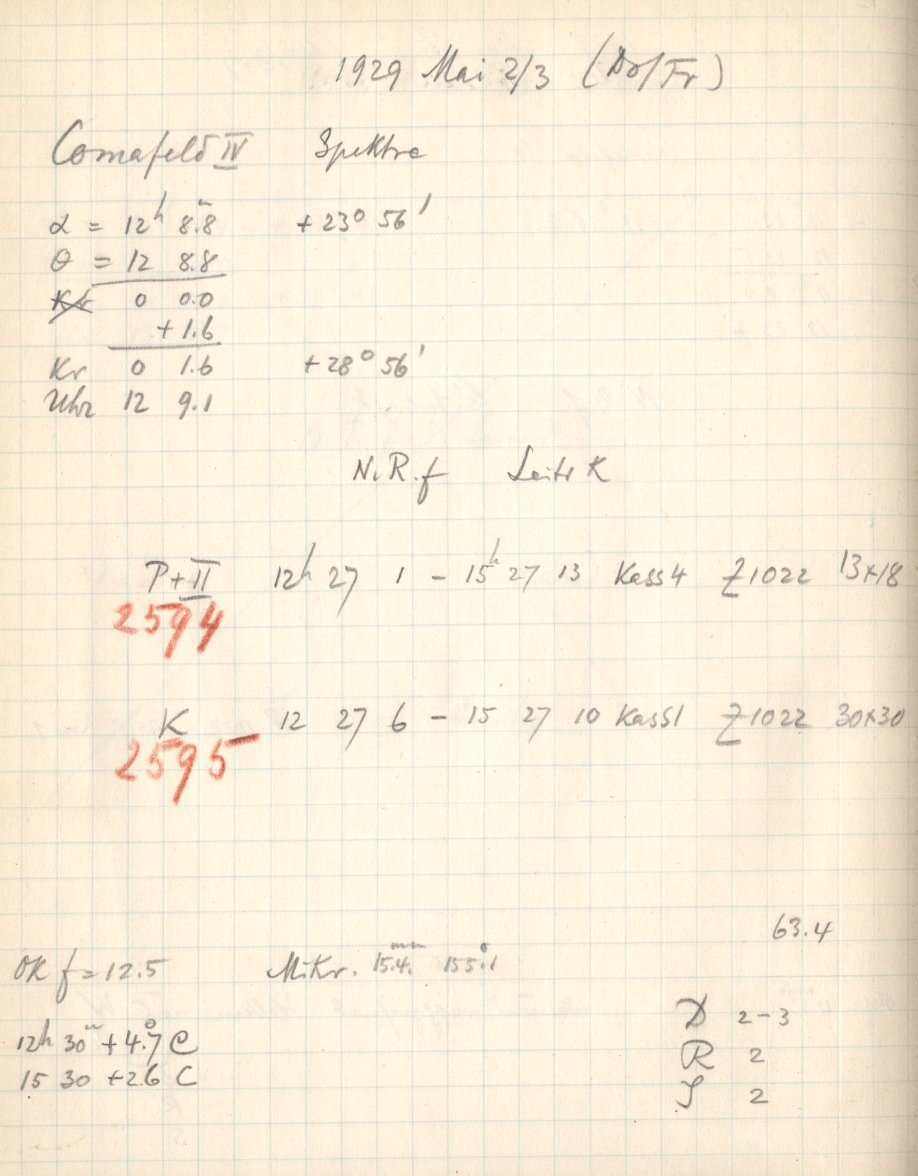 1929 Mai 2/3 (Do/Fr)
Comafeld IV Spektra
α = 12h 8.8m +23° 56'
θ = 12 8.8
Kr 0 0.0
+1.6
Kr 0 1.6 +28° 56'
Uhr 12 9.1
N.R.f Leitr K
P+II 12h 27 1 - 15h 27 13 Kass4 Z1022 13x18
2594
K 12 27 6 - 15 27 10 Kass1 Z1022 30x30
2595
63.4
OK f=12.5 Mikr. 15.4mm 155°.1
12h 30m +4°.7 C
15 30 +2.6 C
D 2-3
R 2
S 2